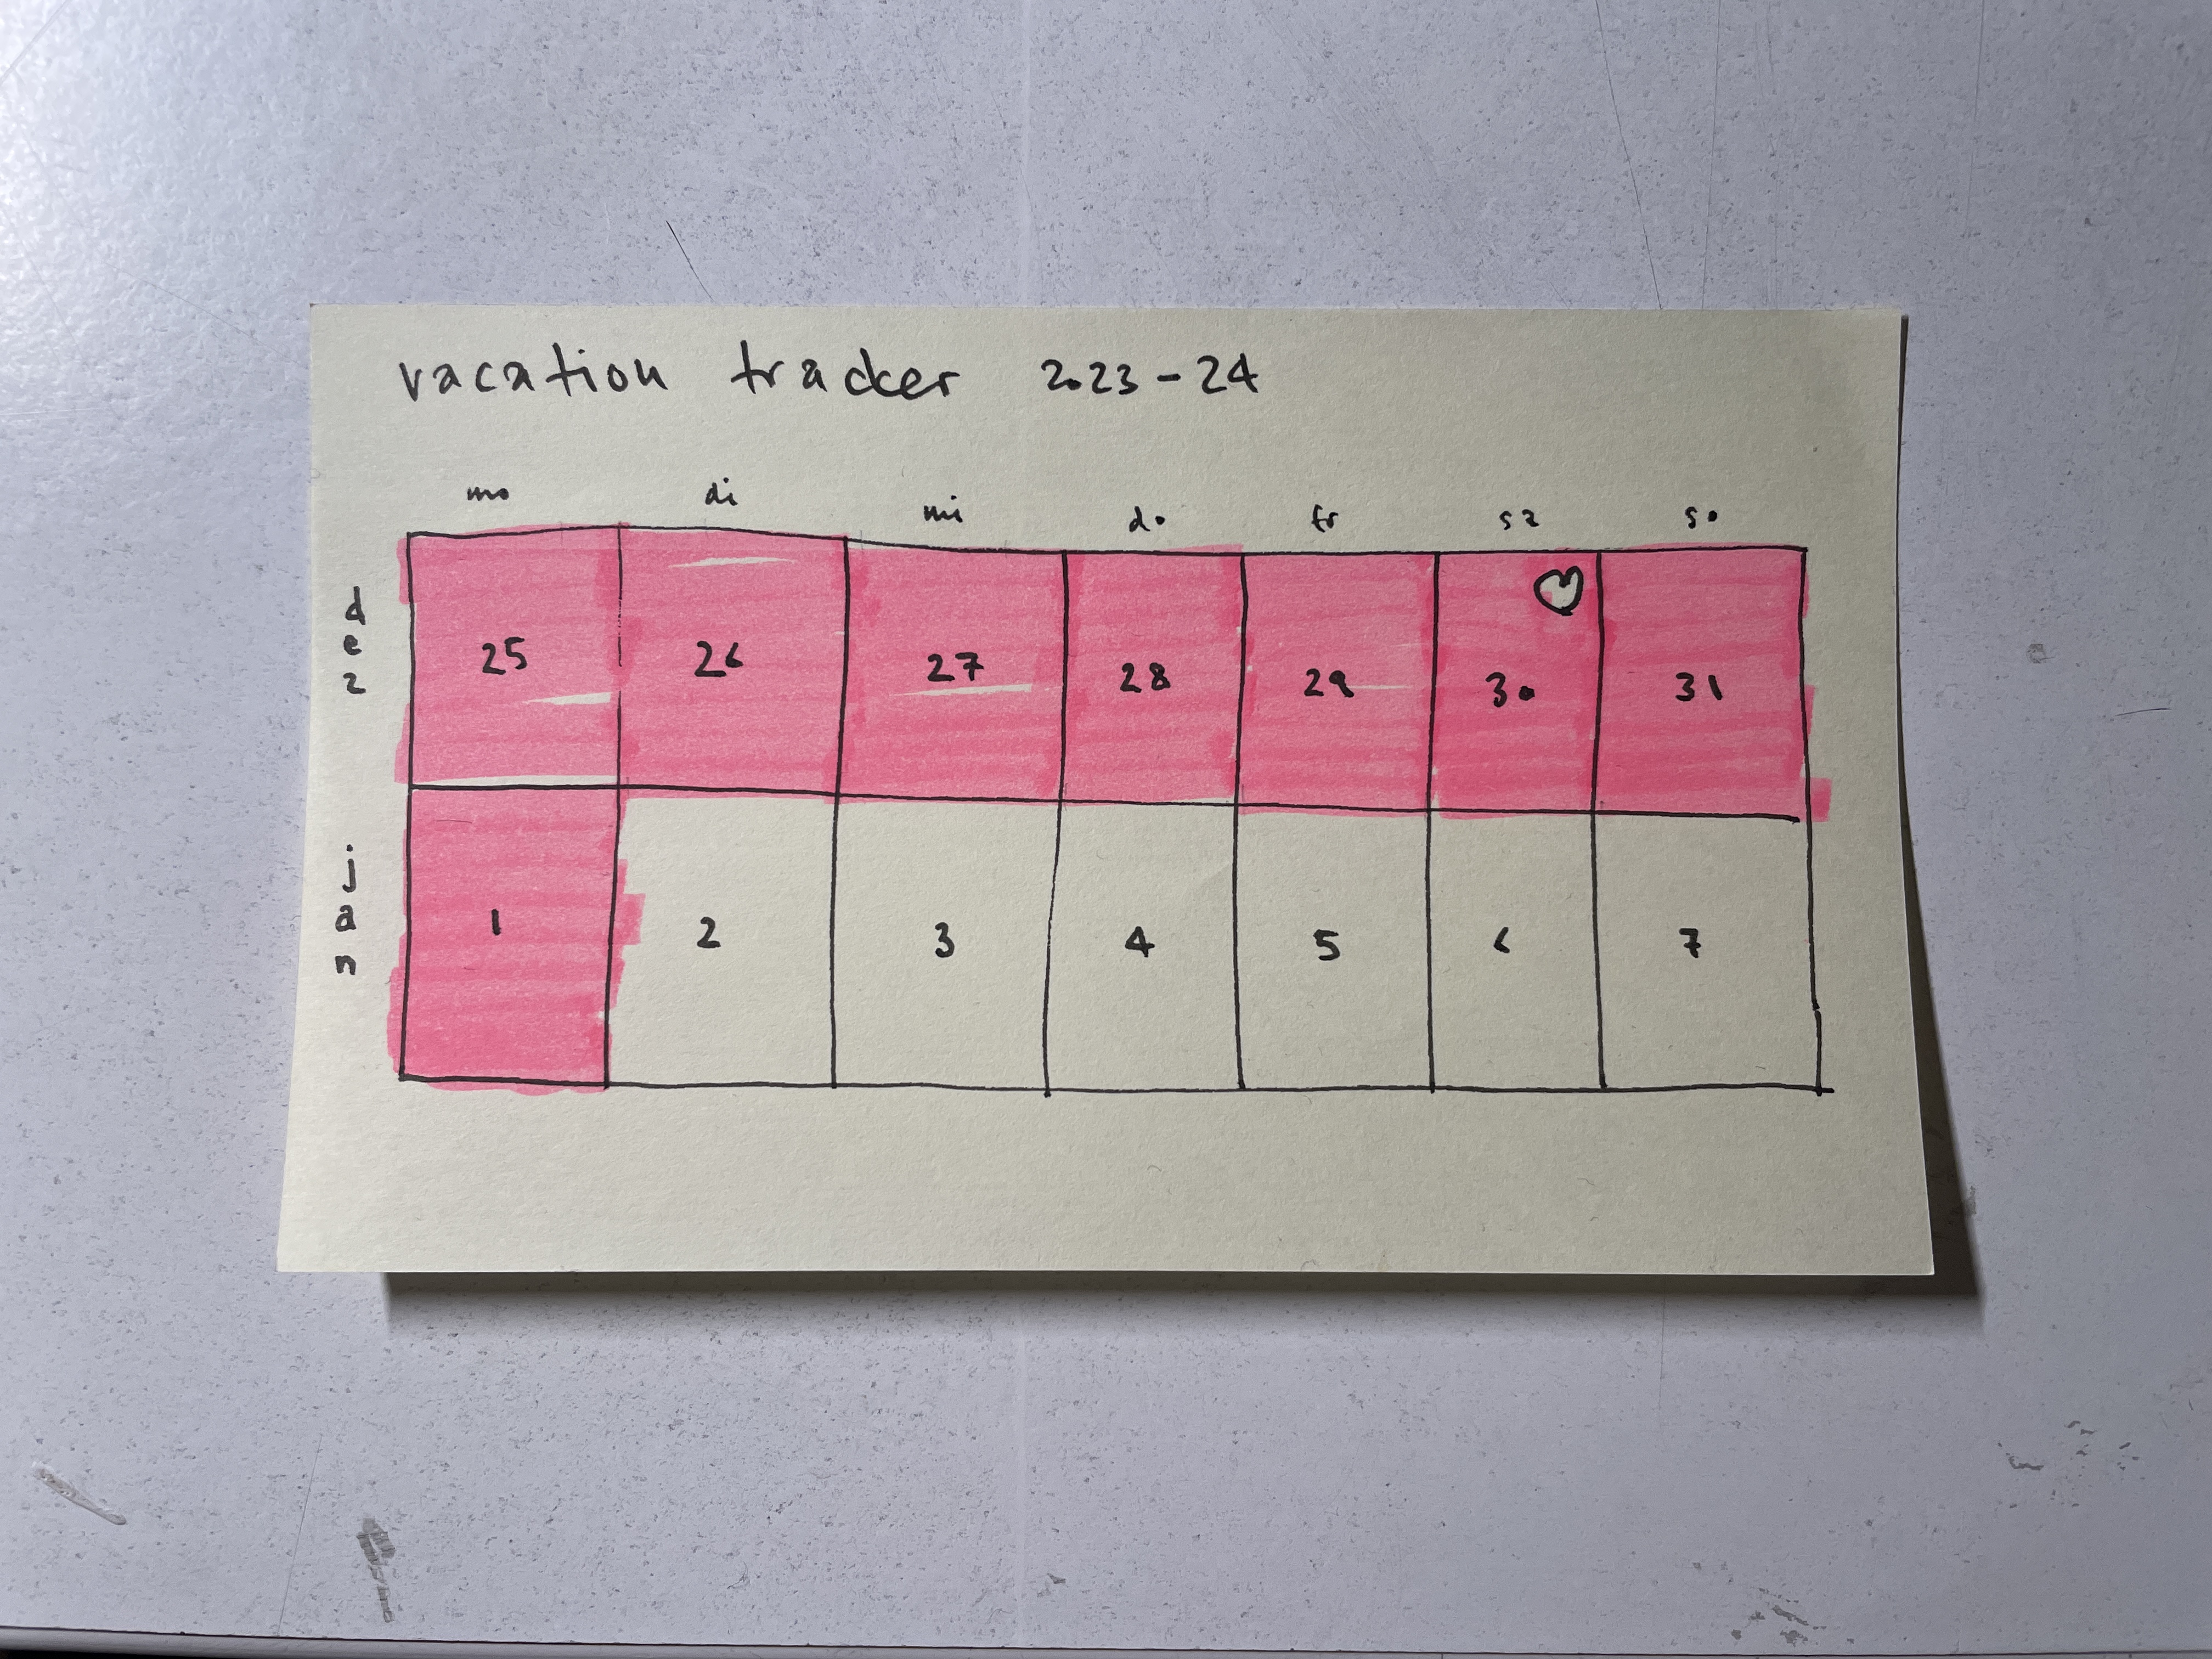 vacation tracker 2023-24
mo di mi do fr sa so
dez
25 26 27 28 29 30 31
jan
1 2 3 4 5 6 7